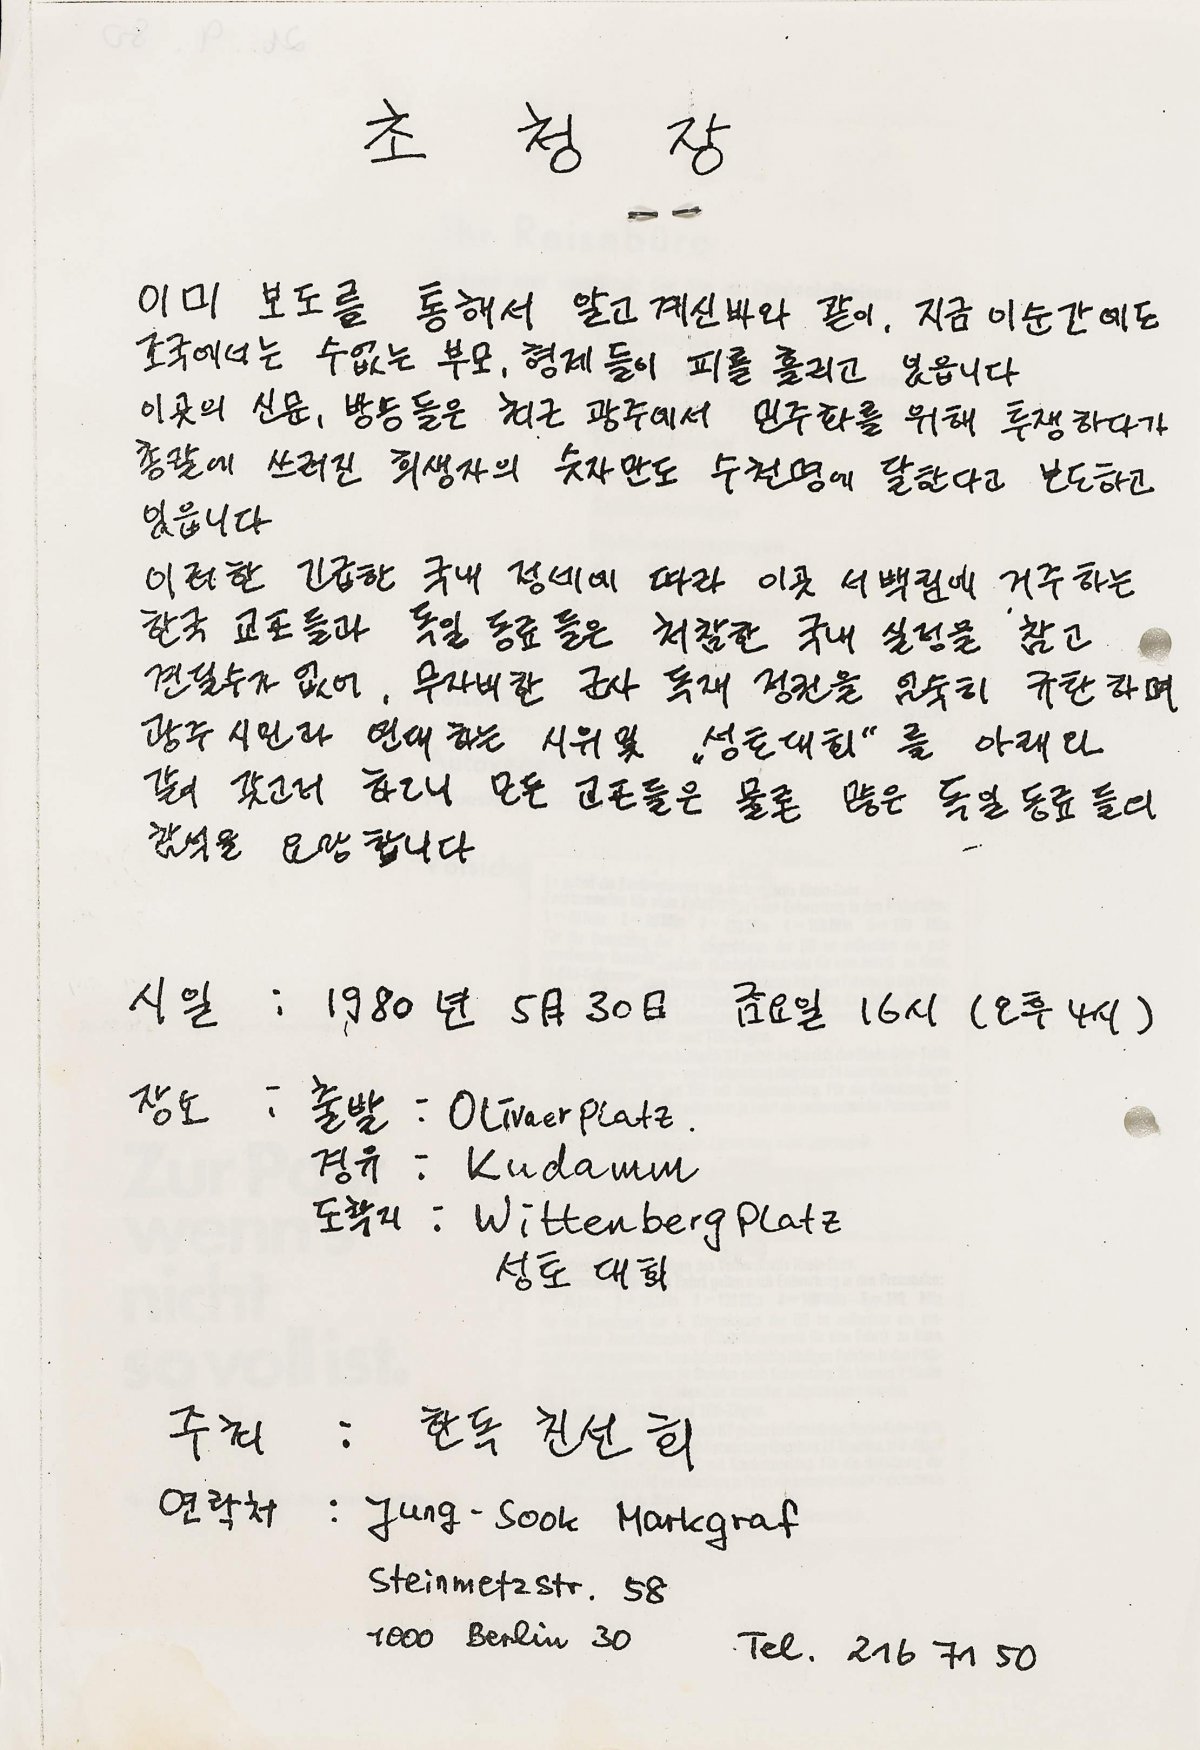 초 청 장
이미 보도를 통해서 알고 계신바와 같이, 지금 이순간에도
조국에서는 수없는 부모, 형제들이 피를 흘리고 있읍니다
이곳의 신문, 방송들은 최근 광주에서 민주화를 위해 투쟁하다가
총칼에 쓰러진 희생자의 숫자만도 수천명에 달한다고 보도하고
있읍니다
이러한 긴급한 국내 정세에 따라 이곳 서백림에 거주하는
한국 교포들과 독일 동료들은 처참한 국내 실정을 참고
견딜수가 없어, 무자비한 군사 독재 정권을 엄숙히 규탄하며
광주시민과 연대하는 시위 및 „성토대회“를 아래와
같이 갖고저 하오니 모든 교포들은 물론 많은 독일 동료들의
참석을 요망합니다
시일 : 1980년 5月 30日 금요일 16시 (오후 4시)
장소 : 출발 : Olivaerplatz.
경유 : Kudamm
도착지 : Wittenbergplatz
성토 대회
주최 : 한독 친선회
연락처 : Jung-Sook Markgraf
Steinmetzstr. 58
1000 Berlin 30 Tel. 216 71 50